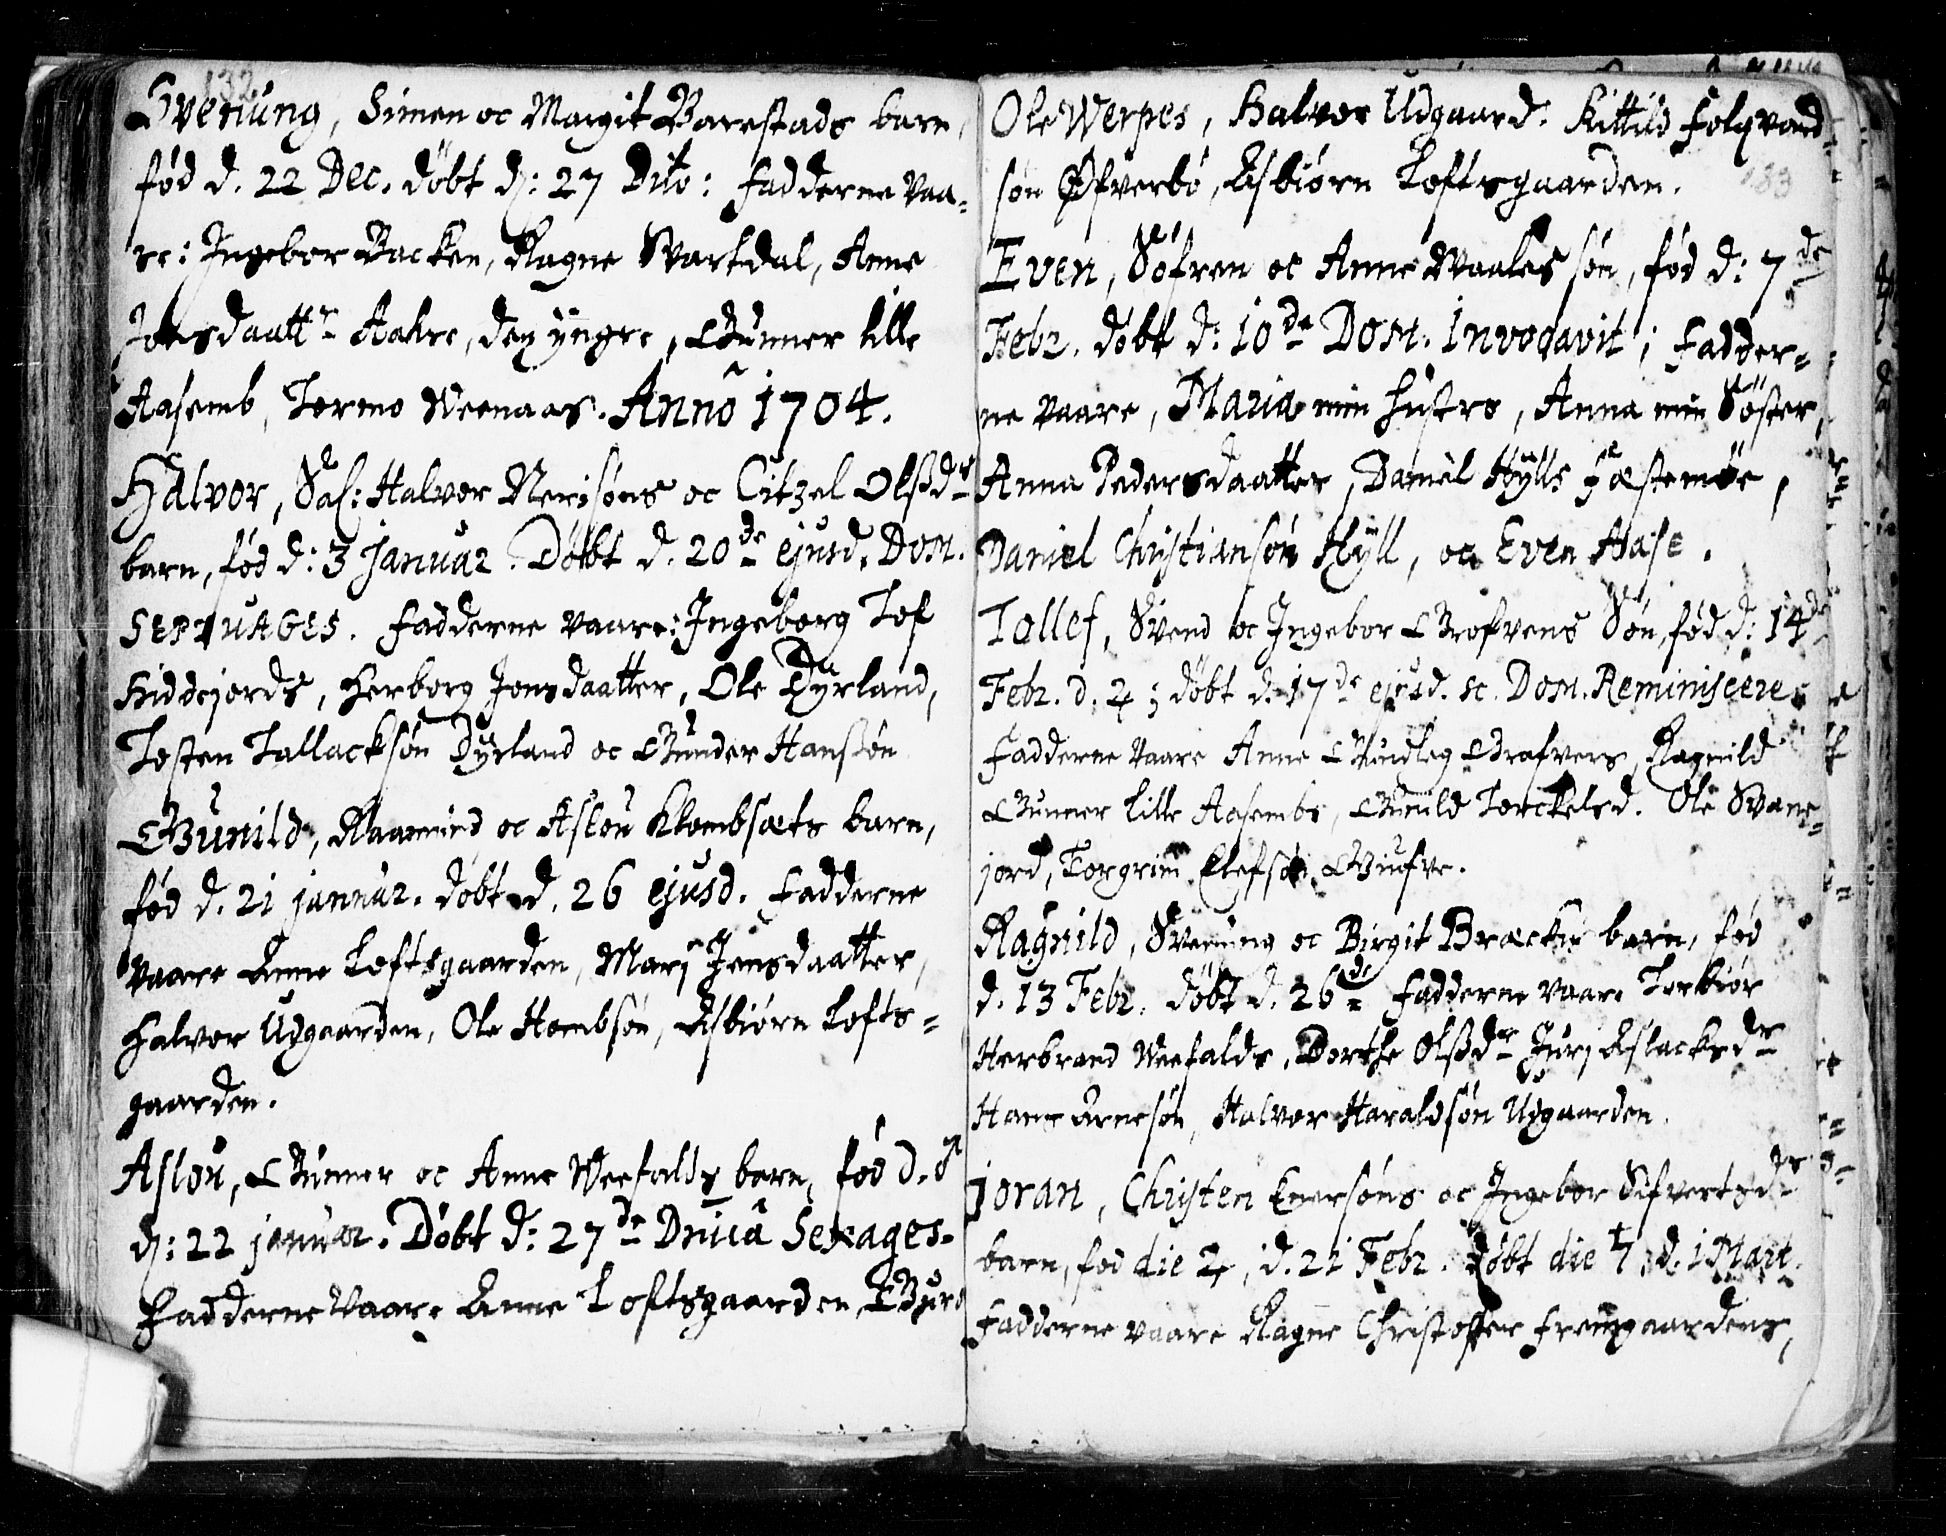 132
Svenung, Simen oc Margit Barestads barn,
fød d. 22 Dec. döbt d: 27 Dito: Fadderne vaa-
re: Ingebor Backen, Ragne Svartdal, Anne
Jonsdaattr Aakre, den yngre, Gunner lille
Aasemb, Tormo Weenaas. Anno 1704.
Halvor, Sal: Halvor Nerisöns oc Citzel Olßdr
barn, fød d: 3 Januar. Döbt d. 20de ejusd. Dom.
Septuages. Fadderne vaare: Ingeborg Tof
Hiddejords, Herborg Jonsdaatter, Ole Dyrland,
Tosten Tallacksön Dyrland oc Gunder Hansßön
Gunild, Raamund oc Aslou Klombsæts barn,
fød d. 21 januar. döbt d. 26 ejusd. Fadderne
vaare Anne Loftsgaarden, Marj Jensdaatter,
Halvor Udgaarden, Ole Hombsön, Asbiörn Lofts-
gaarden.
Aslou, Gunner oc Anne Weefalds barn, fød d. ♂
d: 22 januar. Döbt d: 27de Dnica Sexages-
Fadderne vaare Anne Loftsgaarden, Guro
Ole Werpes, Halvor Udgaard: Kittild Folqvard-
sön Öfverbö, Asbiörn Loftsgaarden.
183
Even, Söfren oc Anne Waales sön, fød d: 7de
Febr. döbt d: 10de Dom. Invocavit; Fadder-
ne vaare, Maria min hustro, Anna min Söster,
Anna Pedersdaatter, Daniel Hylls Fæstemöe,
Daniel Christiansön Hyll, oc Even Aase.
Tollef, Svend oc Ingebor Grofvens Sön, fød d: 14de
Febr. d. ♃; döbt d. 17de ejusd. sc. Dom. Reminiscere
Fadderne vaare Anne Gundleg Grafvers, Ragnild
Gunner Lille Aasembs, Gunild Torckelsd. Ole Svane-
jord, Torgrim Elefsön Giufve.
Ragnild, Svenung oc Birgit Bræcke barn, fød
d. 13 Febr. döbt d. 26de Fadderne vaare Torbiör
Herbrand Weefalds, Dorthe Olßdr Jurj Aslacksdr
Hans Arnesön, Halvor Haraldsön Udgaarden.
Joran, Christen Enersöns oc Ingebor Sifvertsdr
barn, fød die ♃, d. 21 Febr. döbt die ♄, d. 1 Mart.
Fadderne vaare Ragne Christoffer Fremgaardens,